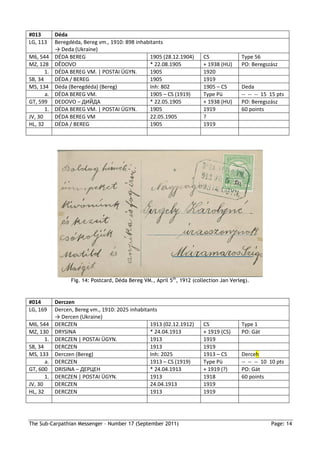 #013 Déda
LG, 113 Beregdéda, Bereg vm., 1910: 898 inhabitants
→ Deda (Ukraine)
M6, 544 DÉDA BEREG 1905 (28.12.1904) CS Type 56
MZ, 128 DÉDOVO * 22.08.1905 + 1938 (HU) PO: Beregszász
1. DÉDA BEREG VM. | POSTAI ÜGYN. 1905 1920
SB, 34 DÉDA / BEREG 1905 1919
MS, 134 Deda (Beregdéda) (Bereg) Inh: 802 1905 – CS Deda
a. DÉDA BEREG VM. 1905 – CS (1919) Type Pü -- -- -- 15 15 pts
GT, 599 DEDOVO – ДИЙДА * 22.05.1905 + 1938 (HU) PO: Beregszász
1. DÉDA BEREG VM. | POSTAI ÜGYN. 1905 1919 60 points
JV, 30 DÉDA BEREG VM 22.05.1905 ?
HL, 32 DÉDA / BEREG 1905 1919
Boldog húsvéti
ünnepeket
kívánunk
és kezét
csókoljuk
Matild és
Nagyságos
Gergely Károlyné
úrasszonynak
Máramaros Sziget
Fig. 14: Postcard, Déda Bereg VM., April 5th, 1912 (collection Jan Verleg).
#014 Derczen
LG, 169 Dercen, Bereg vm., 1910: 2025 inhabitants
→ Dercen (Ukraine)
M6, 544 DERCZEN 1913 (02.12.1912) CS Type 1
MZ, 130 DRYSINA * 24.04.1913 + 1919 (CS) PO: Gát
1. DERCZEN | POSTAI ÜGYN. 1913 1919
SB, 34 DERCZEN 1913 1919
MS, 133 Derczen (Bereg) Inh: 2025 1913 – CS Derceh
a. DERCZEN 1913 – CS (1919) Type Pü -- -- -- 10 10 pts
GT, 600 DRISINA – ДЕРЦЕН * 24.04.1913 + 1919 (?) PO: Gát
1. DERCZEN | POSTAI ÜGYN. 1913 1918 60 points
JV, 30 DERCZEN 24.04.1913 1919
HL, 32 DERCZEN 1913 1919
The Sub-Carpathian Messenger – Number 17 (September 2011) Page: 14